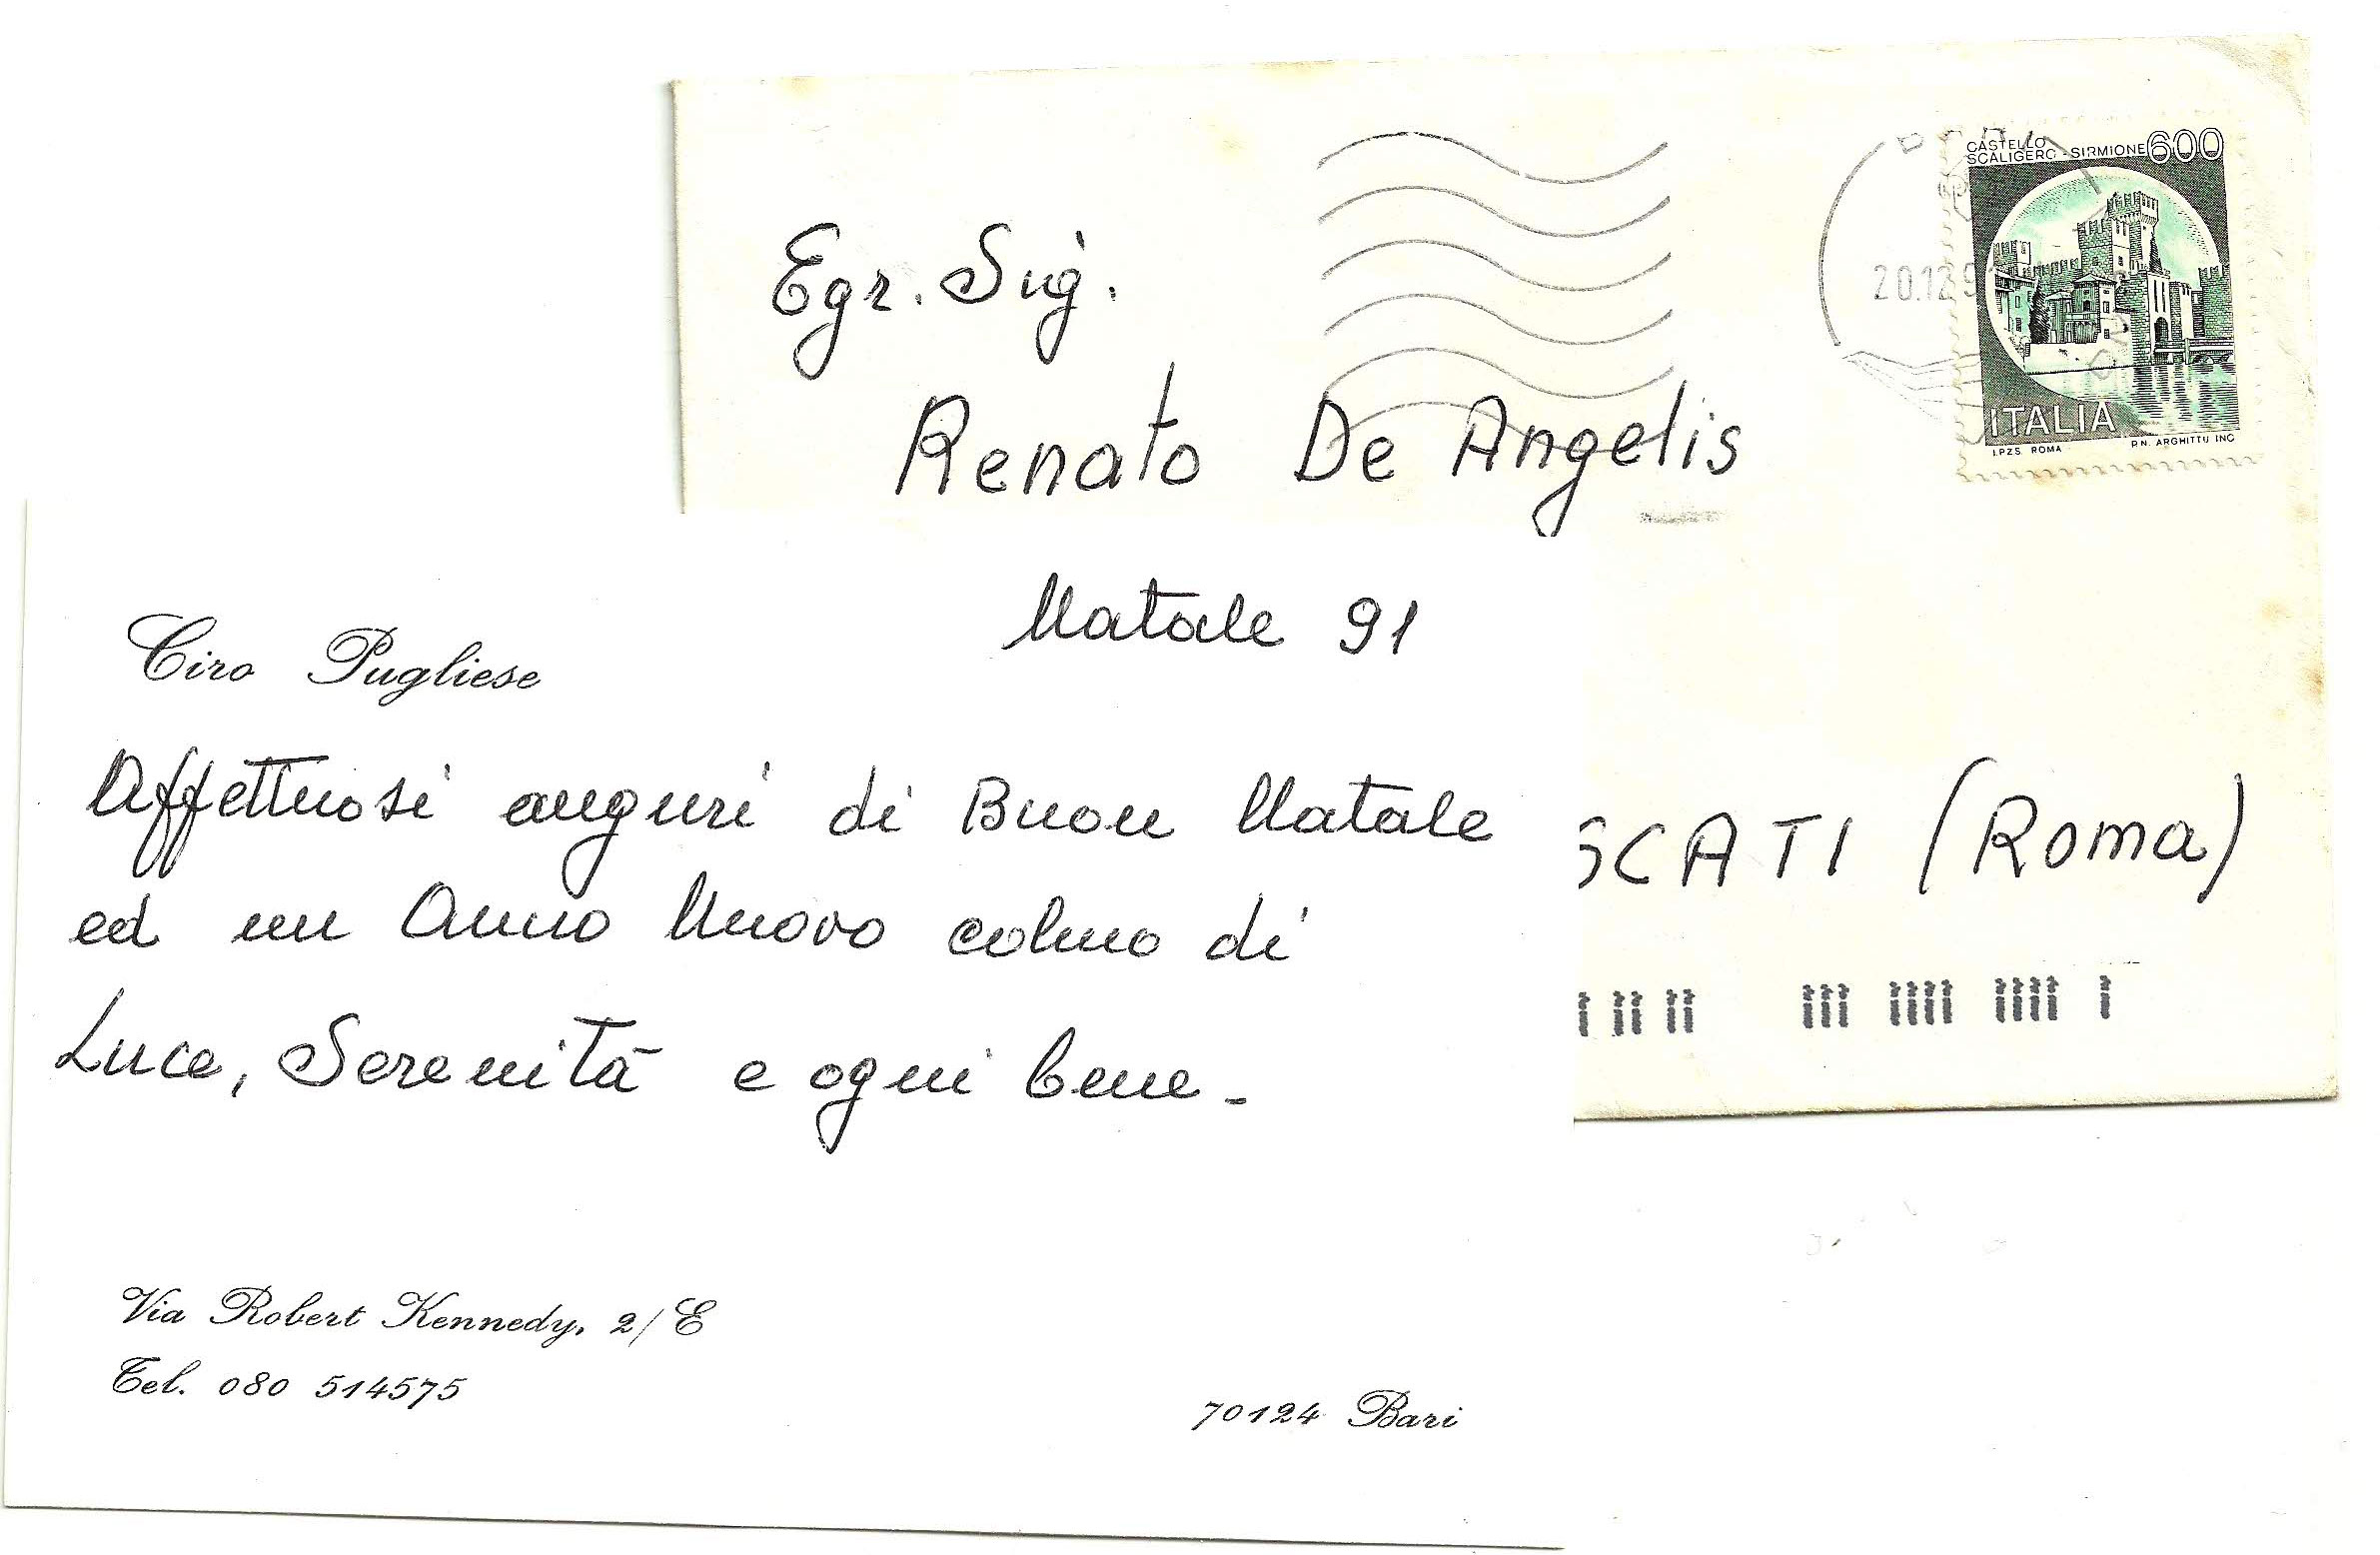 CASTELLO
SCALIGERO - SIRMIONE 600
20.12.9
ITALIA
I.P.Z.S. ROMA P.N. ARGHITTU INC
Egr. Sig.
Renato De Angelis
SCATI (Roma)
Natale 91
Ciro Pugliese
Affettuosi auguri di Buon Natale
ed un Anno Nuovo colmo di
Luce, Serenità e ogni bene -
Via Robert Kennedy, 2/E
Tel. 080 514575
70124 Bari